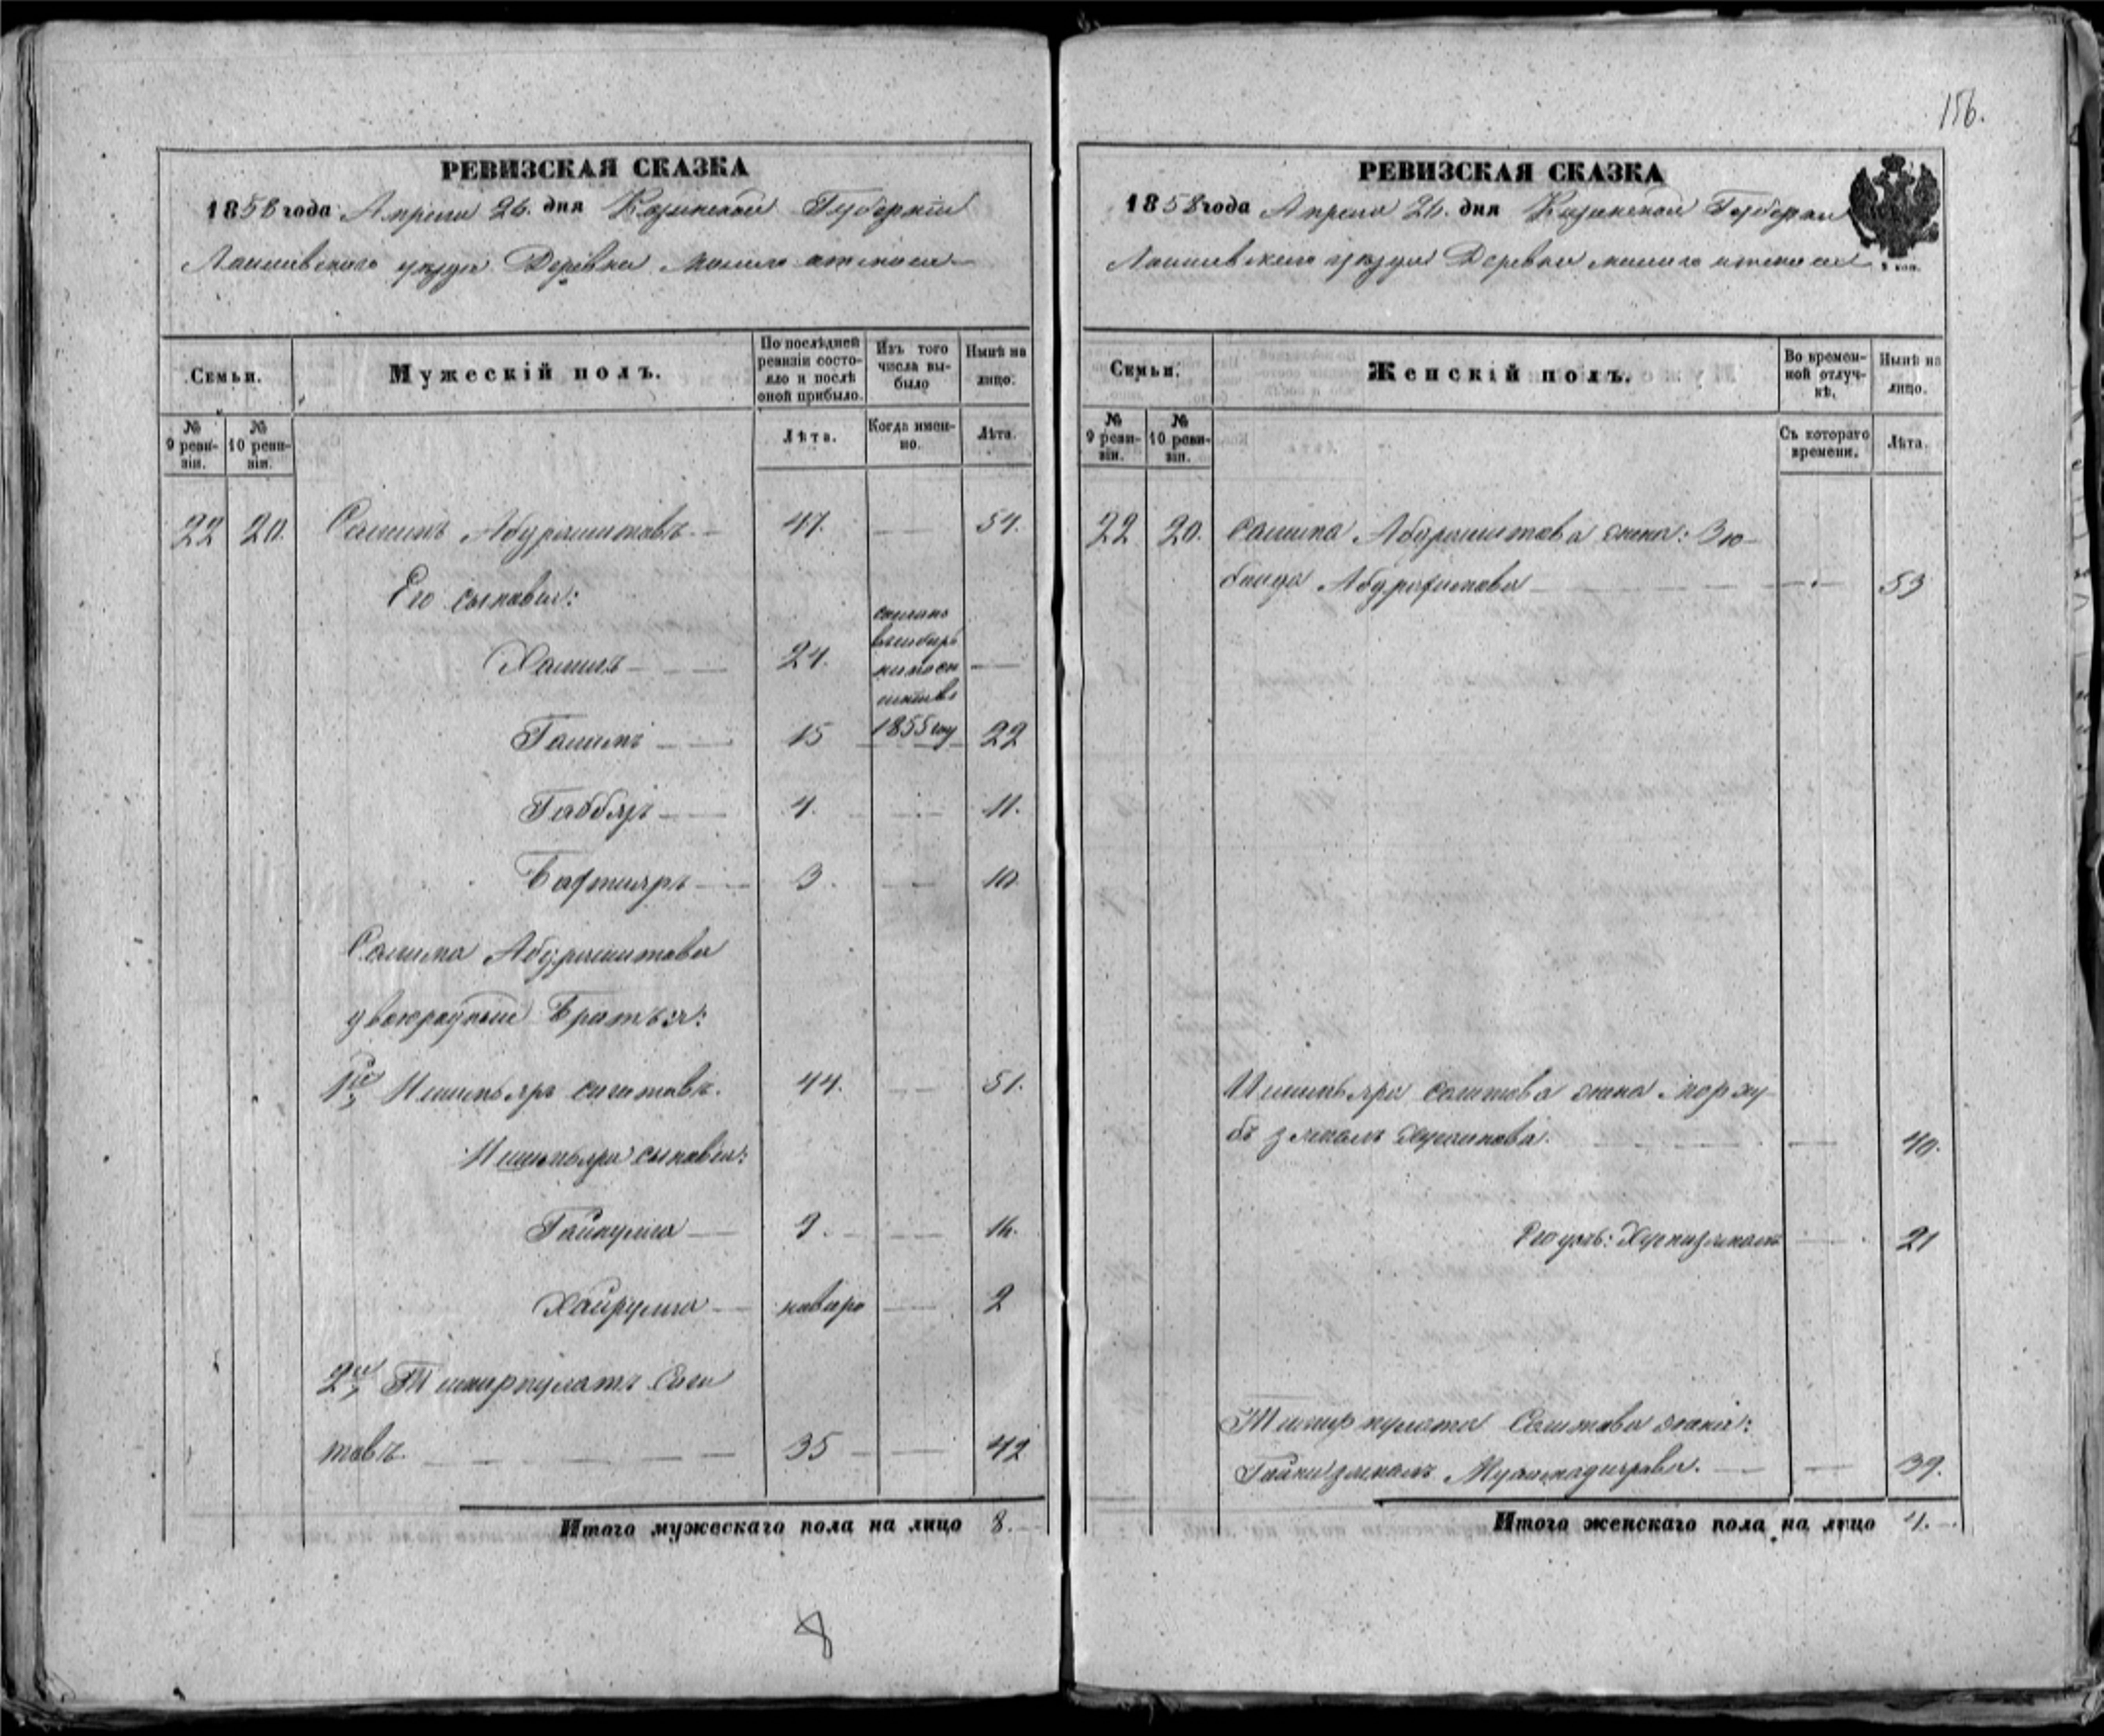 156.
РЕВИЗСКАЯ СКАЗКА
1858 года Апреля 26. дня Казанской Губернии
Лаишевского уезда Деревни Малого
Семьи.
Мужескій полъ.
По послѣдней ревизіи состояло и послѣ оной прибыло.
Изъ того числа выбыло
Нынѣ на лицо.
№ 9 ревизіи.
№ 10 ревизіи.
Лѣта.
Когда именно.
Лѣта.
22 20. Салимъ Абдрашитовъ 47. 54.
Его сыновья:
Халилъ 24.
1855 году
Галимъ 15 22
4. 11.
Бахтияръ 3. 10
Салима Абдрашитова
двоюродныые Братья:
1й Ишмъяръ Сагитовъ. 44. 51.
Ишмъяра сыновья:
Гайнулла 9. 16.
Хайрулла 2
2й Тимирпулатъ Саги
товъ. 35 42
Итого мужескаго пола на лицо 8.
8
РЕВИЗСКАЯ СКАЗКА
1858 года Апреля 26. дня Казанской Губернии
Лаишевского уезда Деревни Малого
Семьи.
Женскій полъ.
Во временной отлучкѣ.
Нынѣ на лицо.
№ 9 ревизіи.
№ 10 ревизіи.
Съ котораго времени.
Лѣта.
22 20. Салима Абдрашитова жена: Зю-
баида 53
Ишмъяра Сагитова жена
40.
Его дочь: Хуснизямалъ 21
Тимирпулата Сагитова жена:
Гайнизямалъ 39.
Итого женскаго пола на лицо 4.